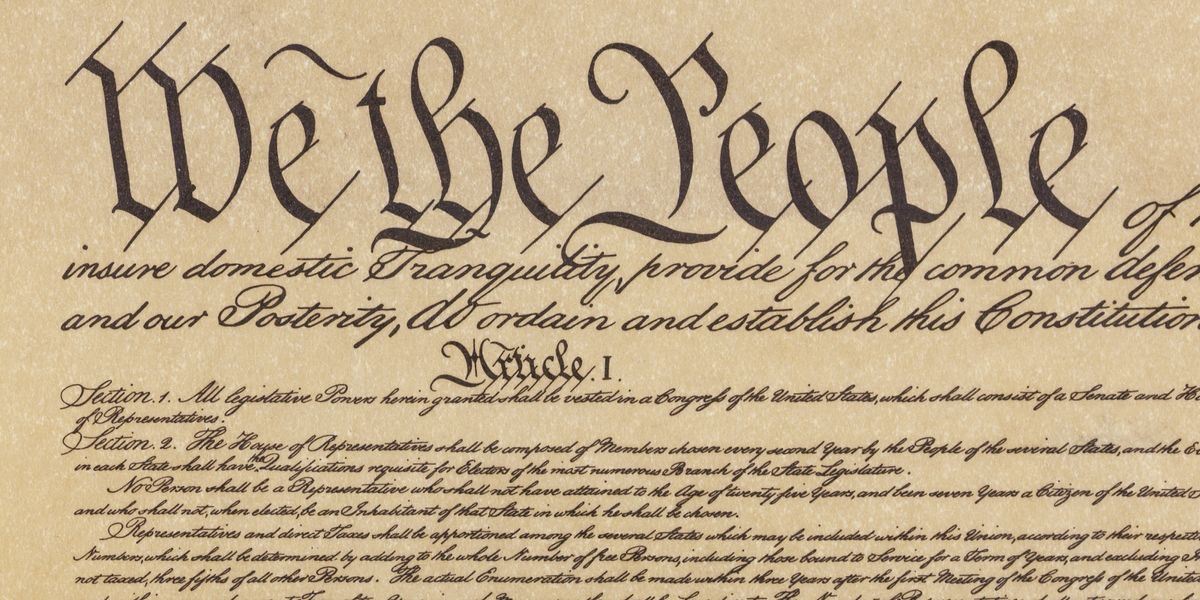 We the People of
insure domestic Tranquility, provide for the common defen
and our Posterity, do ordain and establish this Constitution
Article. I.
Section. 1. All legislative Powers herein granted shall be vested in a Congress of the United States, which shall consist of a Senate and Ho
of Representatives.
Section. 2. The House of Representatives shall be composed of Members chosen every second Year by the People of the several States, and the
in each State shall have the Qualifications requisite for Electors of the most numerous Branch of the State Legislature.
No Person shall be a Representative who shall not have attained to the Age of twenty five Years, and been seven Years a Citizen of the United
and who shall not, when elected, be an Inhabitant of that State in which he shall be chosen.
Representatives and direct Taxes shall be apportioned among the several States which may be included within this Union, according to their respect
Numbers, which shall be determined by adding to the whole Number of free Persons, including those bound to Service for a Term of Years, and excluding
not taxed, three fifths of all other Persons. The actual Enumeration shall be made within three Years after the first Meeting of the Congress of the United